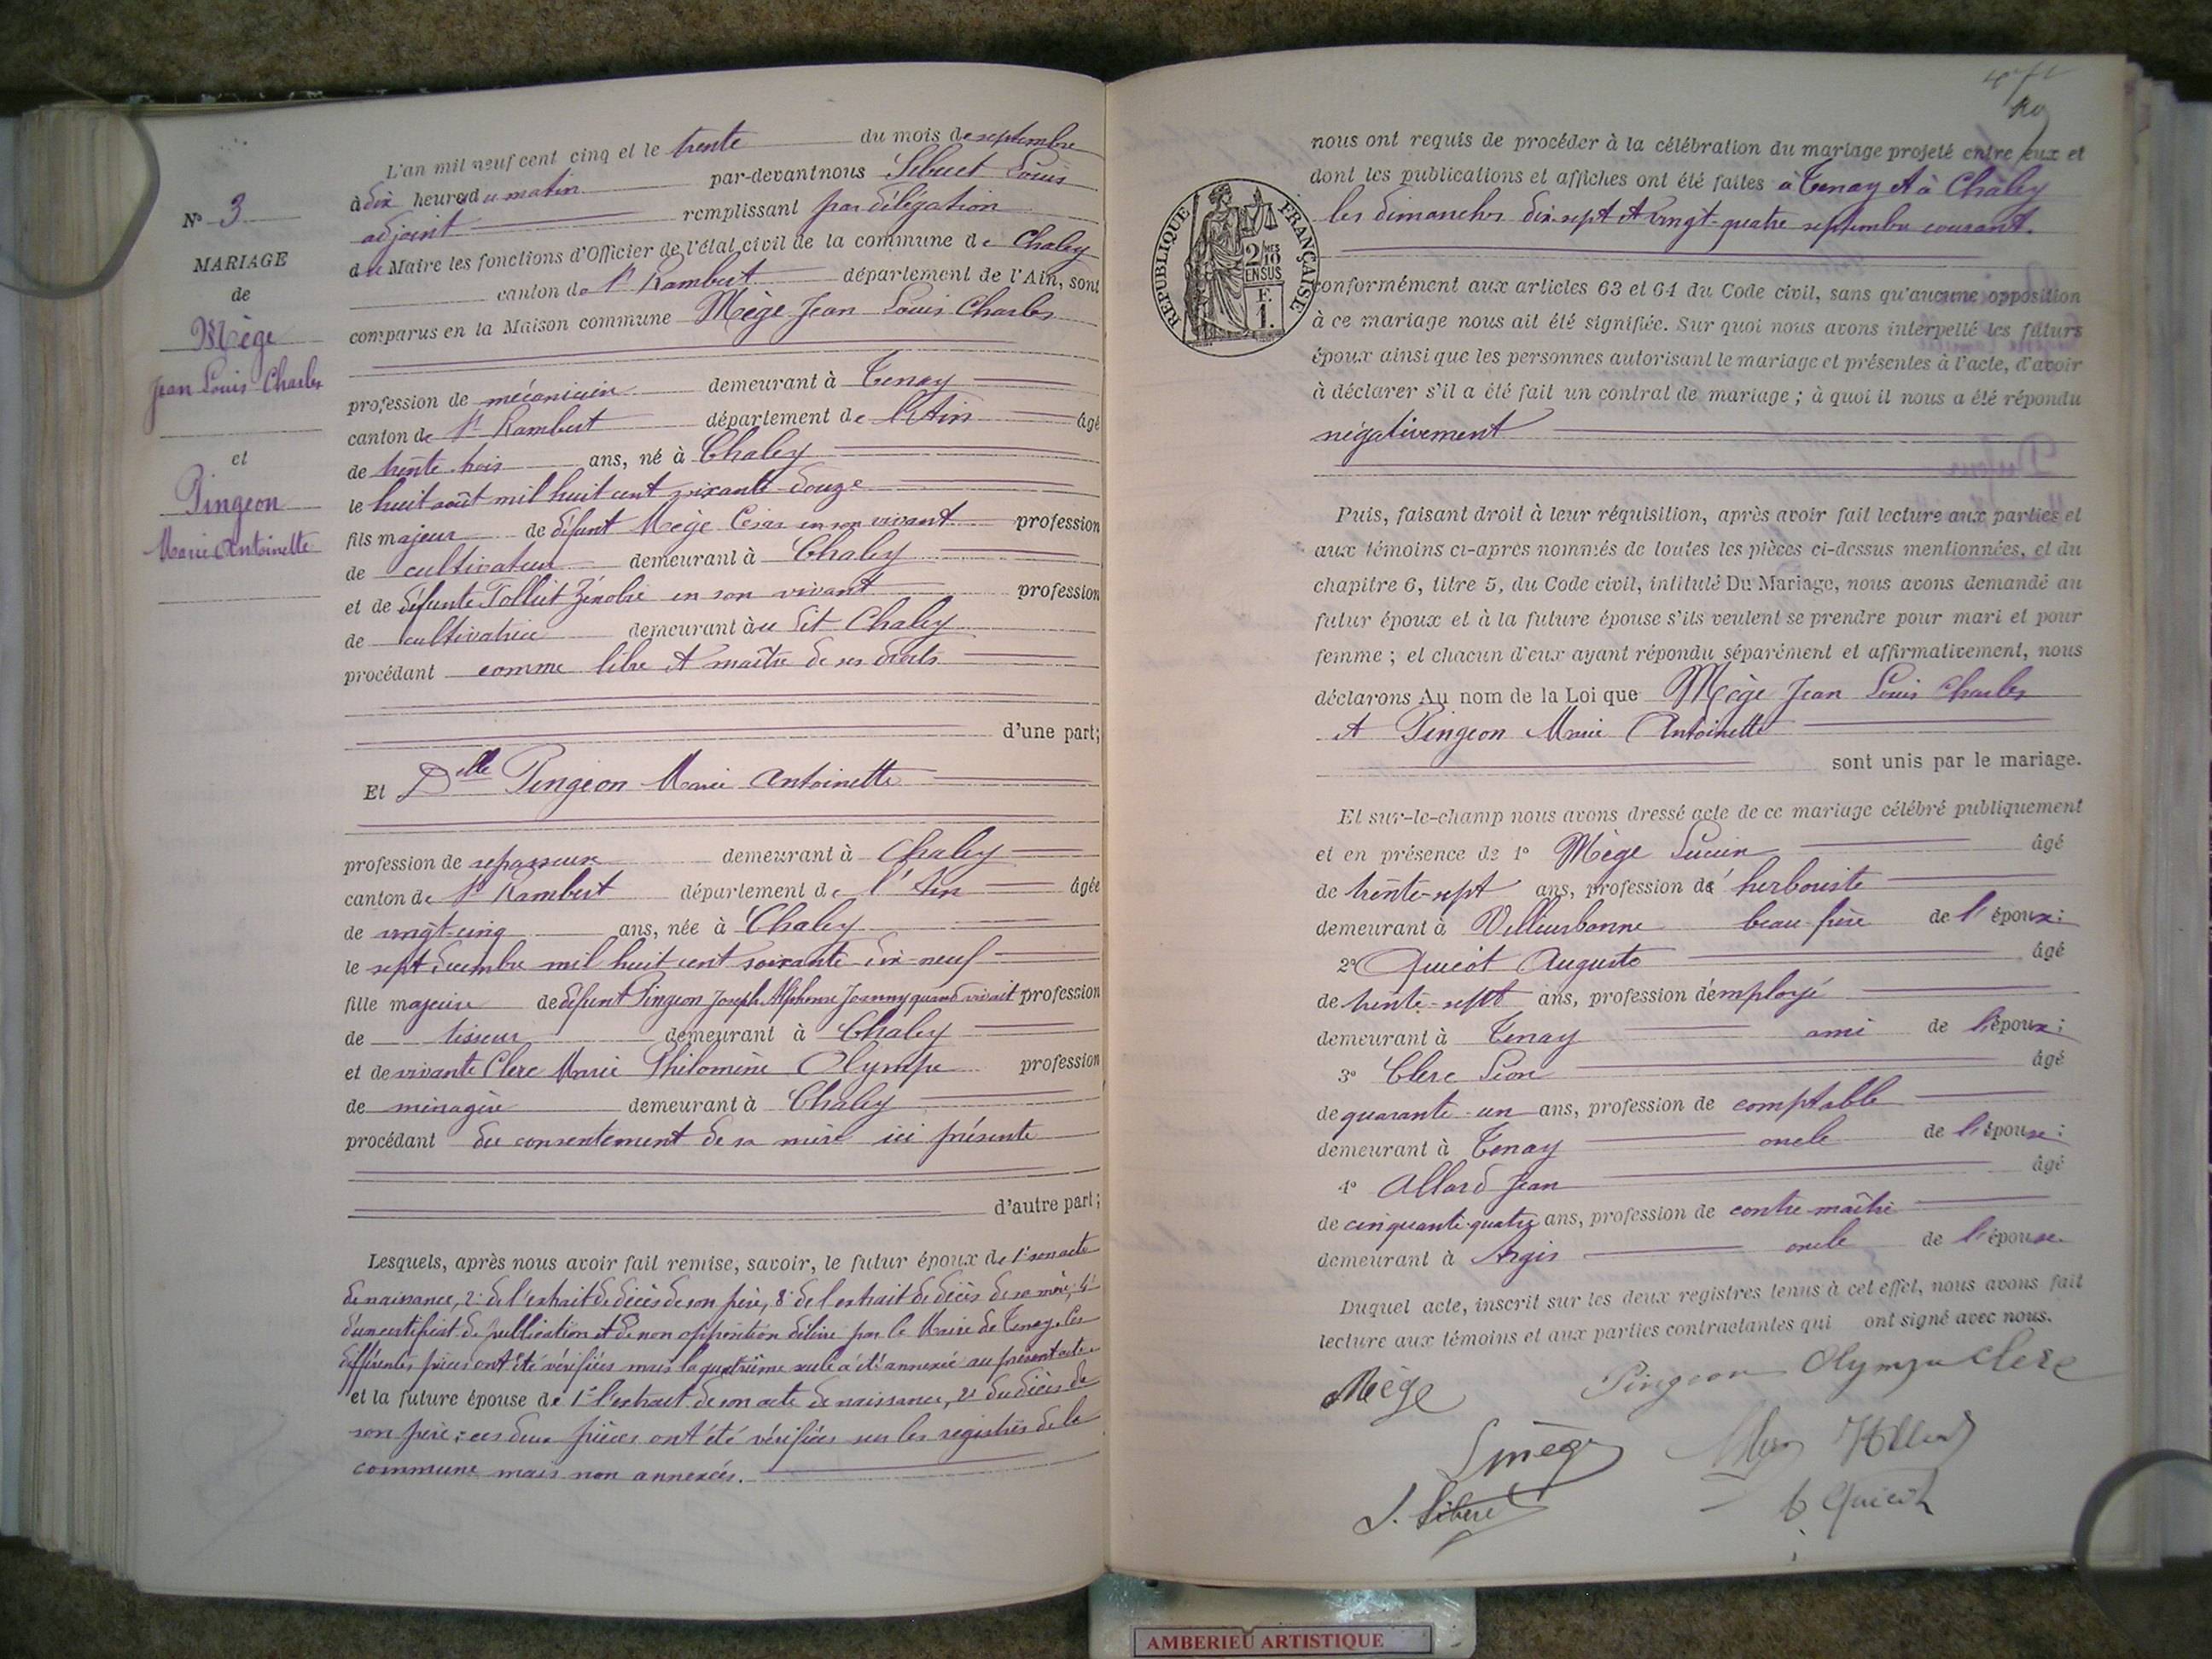 N° 3
MARIAGE
de
Mège
Jean Louis Charles
et
Pingeon
Marie Antoinette
L'an mil neuf cent cinq et le trente du mois de septembre
à dix heures du matin par-devant nous Sibuet Louis
adjoint remplissant par délégation
du Maire les fonctions d'Officier de l'état civil de la commune de Chaley
canton de St Rambert département de l'Ain, sont
comparus en la Maison commune Mège Jean Louis Charles
profession de mécanicien demeurant à Tenay
canton de St Rambert département de l'Ain âgé
de trente trois ans, né à Chaley
le huit août mil huit cent soixante-douze
fils majeur de défunt Mège César en son vivant profession
de cultivateur demeurant à Chaley
et de défunte Tolliet Zénobie en son vivant profession
de cultivatrice demeurant au dit Chaley
procédant comme libre et maître de ses droits
d'une part;
Et Delle Pingeon Marie Antoinette
profession de repasseuse demeurant à Chaley
canton de St Rambert département de l'Ain âgée
de vingt-cinq ans, née à Chaley
le sept décembre mil huit cent soixante dix-neuf
fille majeure de défunt Pingeon Joseph Alphonse Joanny quand vivait profession
de tisseur demeurant à Chaley
et de vivante Clerc Marie Philomène Olympe profession
de ménagère demeurant à Chaley
procédant du consentement de sa mère ici présente
d'autre part;
Lesquels, après nous avoir fait remise, savoir, le futur époux de 1° son acte
de naissance, 2° de l'extrait de décès de son père, 3° de l'extrait de décès de sa mère, 4°
d'un certificat de publication et de non opposition délivré par le Maire de Tenay. Ces
différentes pièces ont été vérifiées mais la quatrième seule a été annexée au présent acte
et la future épouse de 1° l'extrait de son acte de naissance, 2° du décès de
son père; ces deux pièces ont été vérifiées sur les registres de la
commune mais non annexées.
nous ont requis de procéder à la célébration du mariage projeté entre eux et
dont les publications et affiches ont été faites à Tenay et à Chaley
les dimanches dix-sept et vingt-quatre septembre courant.
RÉPUBLIQUE FRANÇAISE
2/10 EN SUS
F.
1.
conformément aux articles 63 et 64 du Code civil, sans qu'aucune opposition
à ce mariage nous ait été signifiée. Sur quoi nous avons interpellé les futurs
époux ainsi que les personnes autorisant le mariage et présentes à l'acte, d'avoir
à déclarer s'il a été fait un contrat de mariage; à quoi il nous a été répondu
négativement
Puis, faisant droit à leur réquisition, après avoir fait lecture aux parties et
aux témoins ci-après nommés de toutes les pièces ci-dessus mentionnées, et du
chapitre 6, titre 5, du Code civil, intitulé Du Mariage, nous avons demandé au
futur époux et à la future épouse s'ils veulent se prendre pour mari et pour
femme; et chacun d'eux ayant répondu séparément et affirmativement, nous
déclarons Au nom de la Loi que Mège Jean Louis Charles
et Pingeon Marie Antoinette
sont unis par le mariage.
Et sur-le-champ nous avons dressé acte de ce mariage célébré publiquement
et en présence de 1° Mège Lucien âgé
de trente-sept ans, profession d'herboriste
demeurant à Villeurbanne beau-frère de l'époux;
2° Quicot Auguste âgé
de trente-sept ans, profession d'employé
demeurant à Tenay ami de l'époux;
3° Clerc Léon âgé
de quarante-un ans, profession de comptable
demeurant à Tenay oncle de l'épouse;
4° Allard Jean âgé
de cinquante-quatre ans, profession de contre-maître
demeurant à Argis oncle de l'épouse.
Duquel acte, inscrit sur les deux registres tenus à cet effet, nous avons fait
lecture aux témoins et aux parties contractantes qui ont signé avec nous.
Mège Pingeon Olympe Clerc
L mège
L. Sibuet A Quicot
AMBERIEU ARTISTIQUE